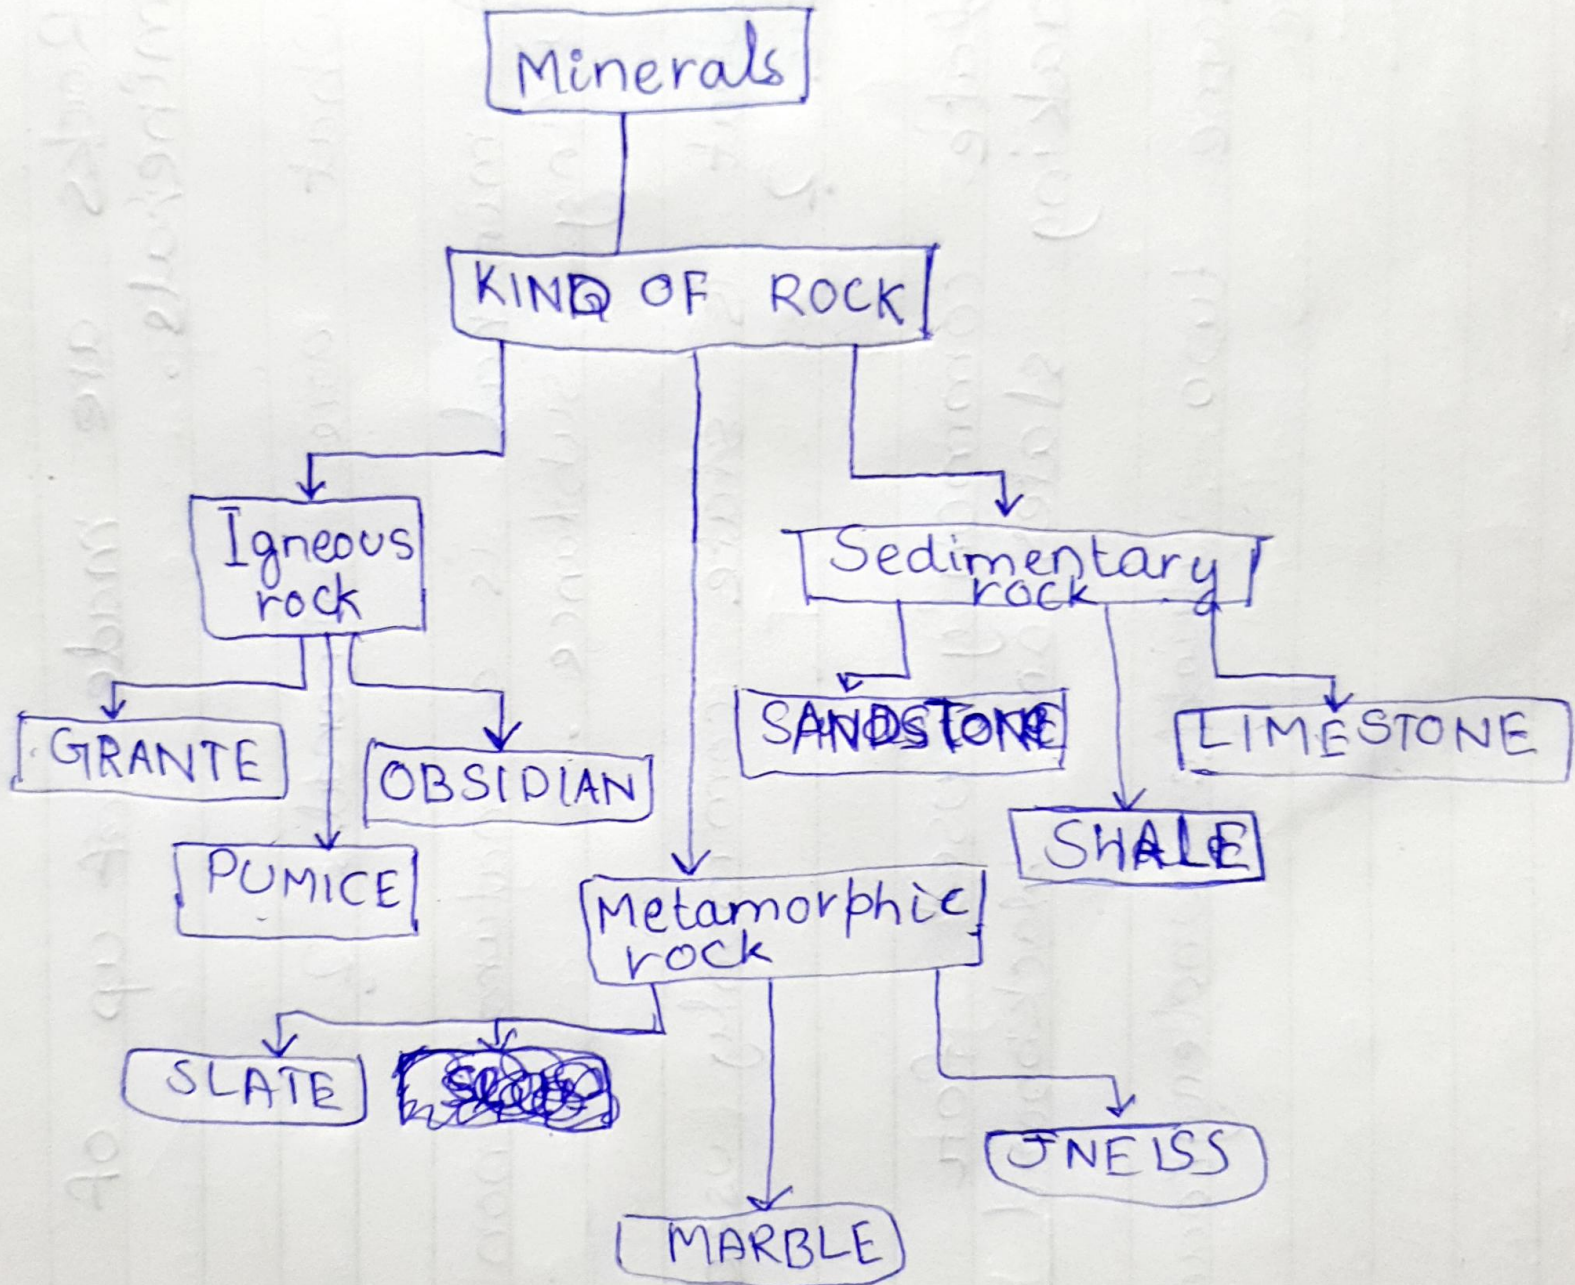 Minerals
KIND OF ROCK
Igneous
rock
Sedimentary
rock
GRANTE
OBSIDIAN
PUMICE
SANDSTONE
LIMESTONE
SHALE
Metamorphic
rock
SLATE
JNEISS
MARBLE